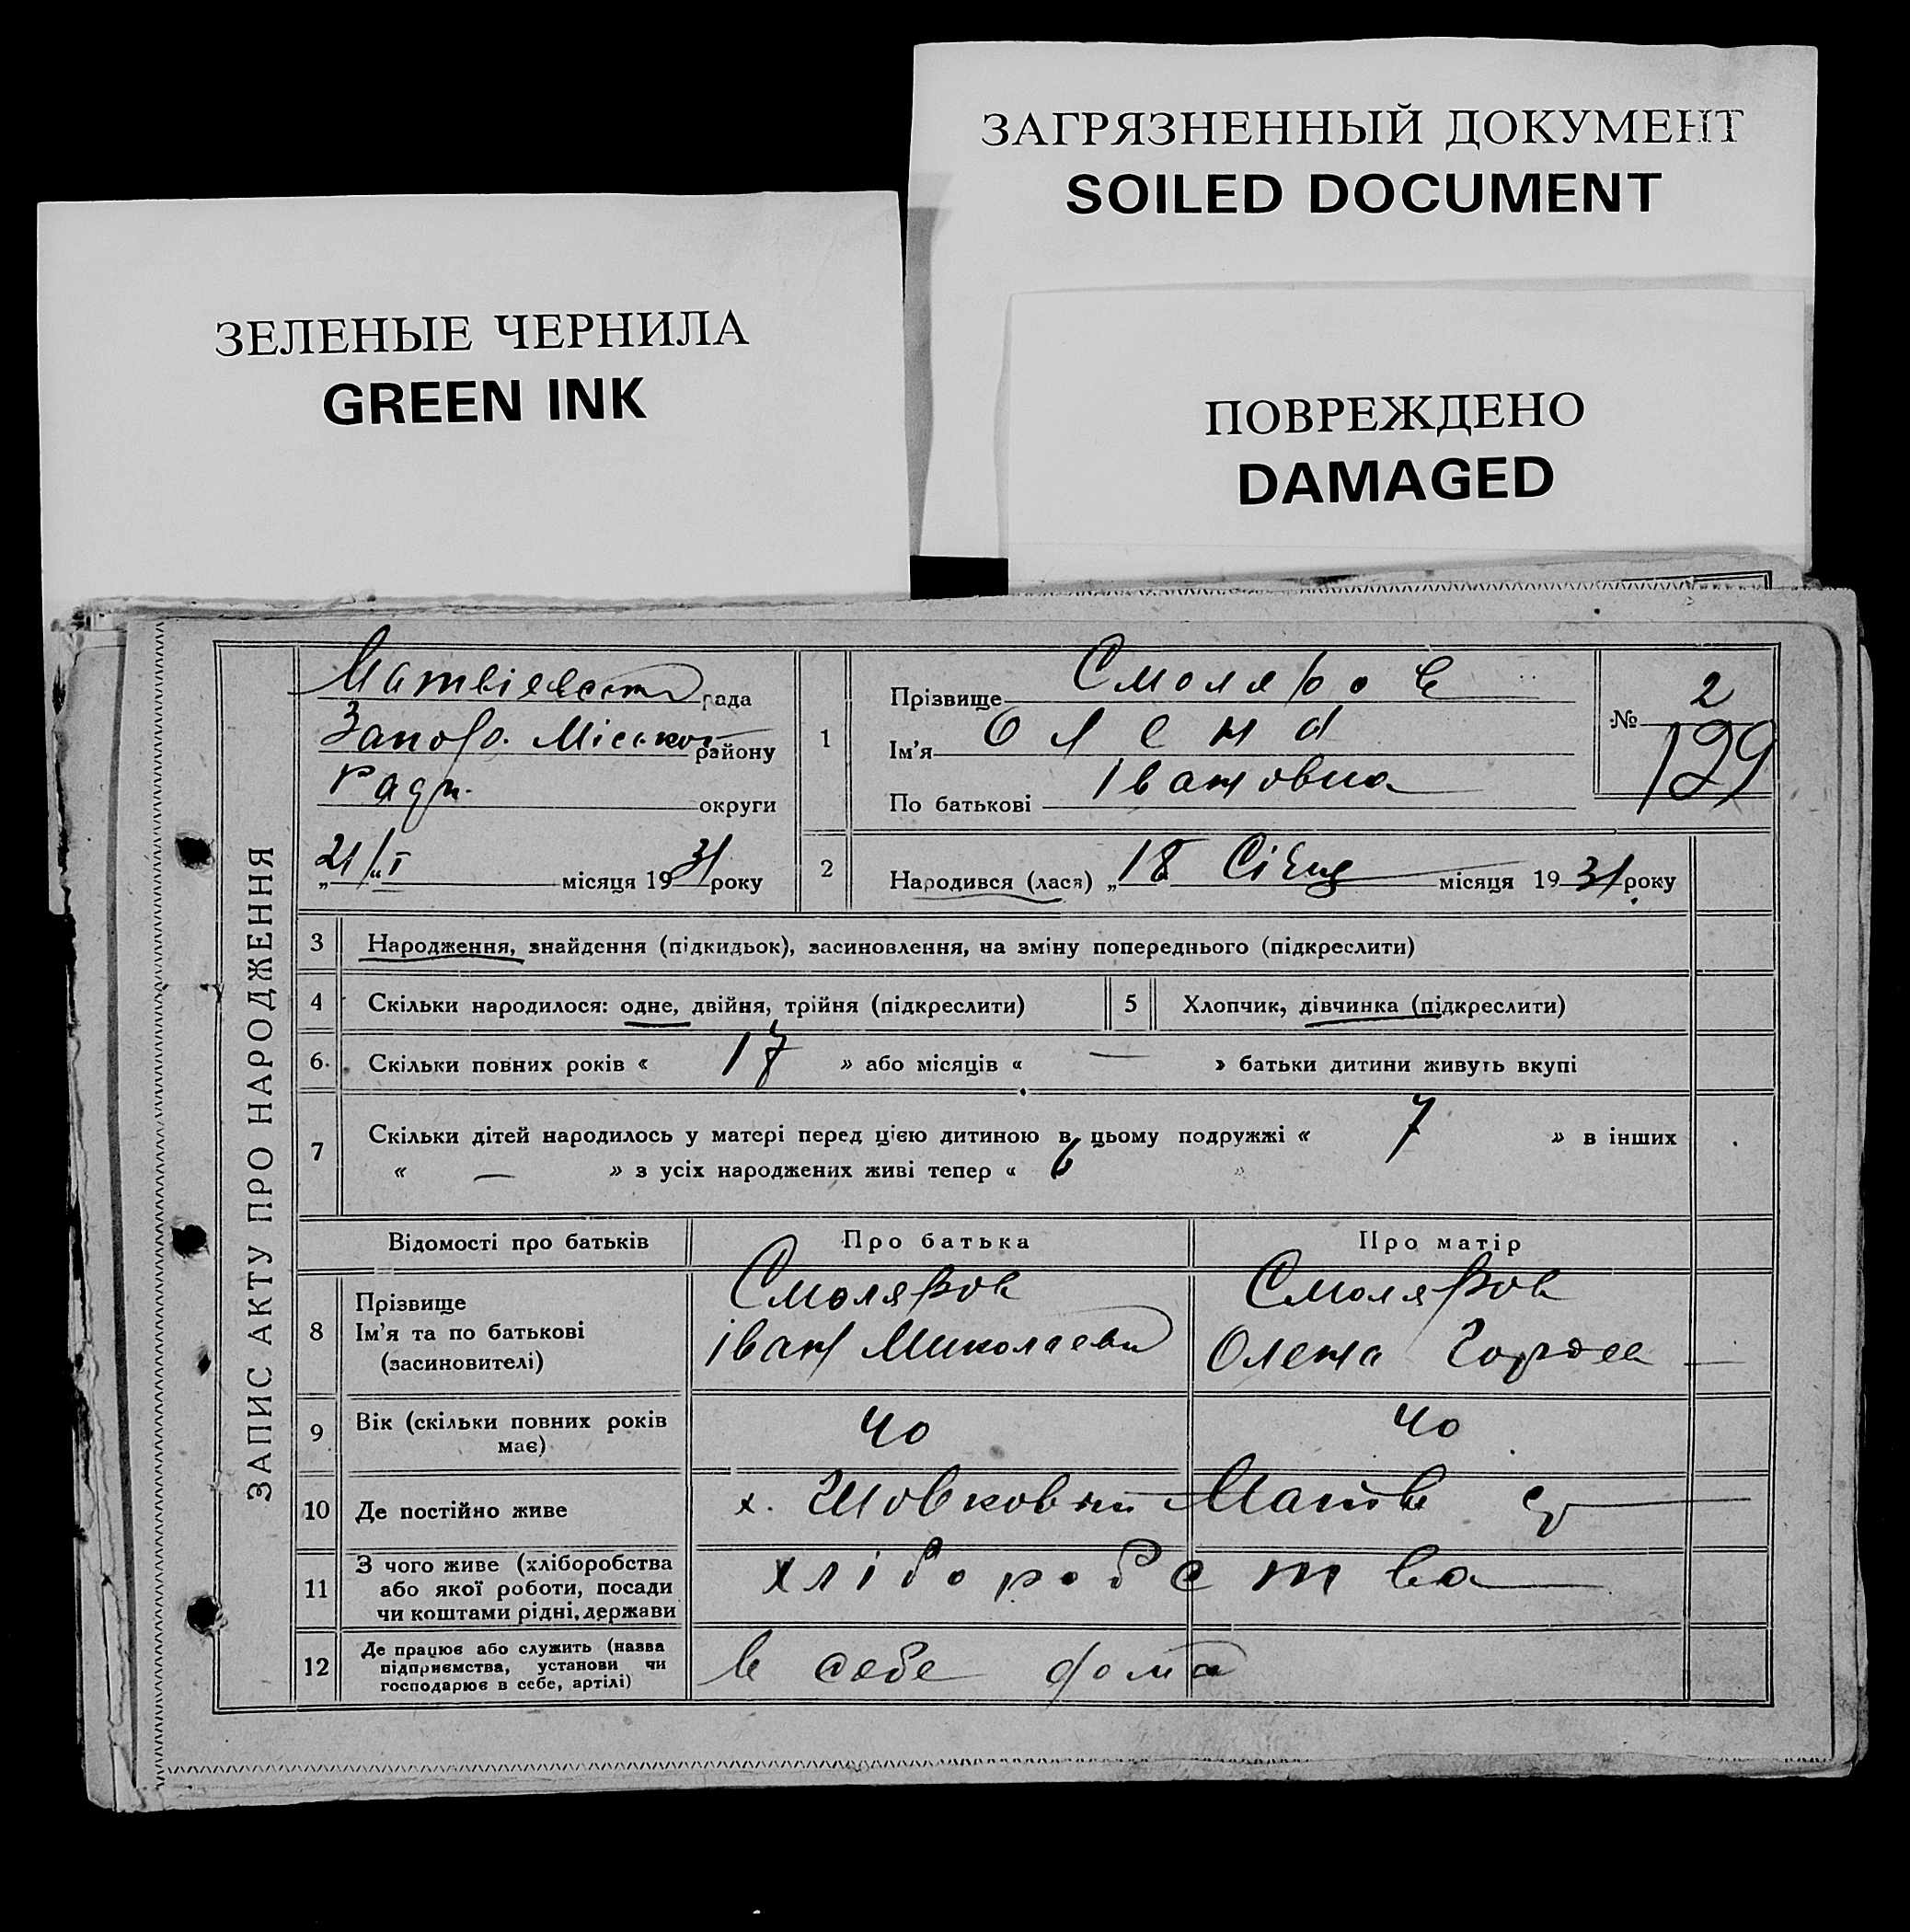 ЗАГРЯЗНЕННЫЙ ДОКУМЕНТ
SOILED DOCUMENT
ЗЕЛЕНЫЕ ЧЕРНИЛА
GREEN INK
ПОВРЕЖДЕНО
DAMAGED
ЗАПИС АКТУ ПРО НАРОДЖЕННЯ
рада
Запор. Міської району
Ради. округи
„21/I“ місяця 1931 року
1
Прізвище Смоляров
Ім'я Олена
По батькові Івановна
№ 2
129
2
Народився (лася) „18 Січня місяця 1931 року
3 Народження, знайдення (підкидьок), засиновлення, на зміну попереднього (підкреслити)
4 Скільки народилося: одне, двійня, трійня (підкреслити) 5 Хлопчик, дівчинка (підкреслити)
6. Скільки повних років « 17 » або місяців « — » батьки дитини живуть вкупі
7 Скільки дітей народилось у матері перед цією дитиною в цьому подружжі « 7 » в інших
« — » з усіх народжених живі тепер « 6 »
Відомості про батьків Про батька Про матір
8 Прізвище
Ім'я та по батькові
(засиновителі)
Смоляров
Іван Миколаевич
Смоляров
Олена
9 Вік (скільки повних років
має)
40 40
10 Де постійно живе х.
11 З чого живе (хліборобства
або якої роботи, посади
чи коштами рідні, держави
хліборобства
12 Де працює або служить (назва
підприємства, установи чи
господарює в себе, артілі)
в себе дома